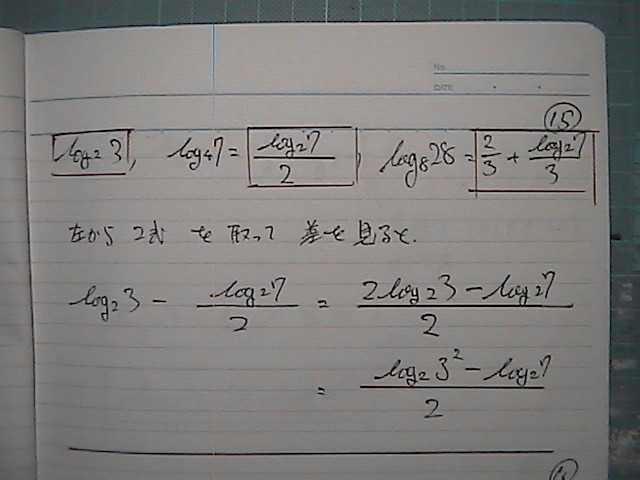 No.
DATE
15
log₂3, log₄7 = log₂7/2, log₈28 = 2/3 + log₂7/3
左から2式を取って差を見ると.
log₂3 − log₂7/2 = (2log₂3 − log₂7)/2
= (log₂3² − log₂7)/2